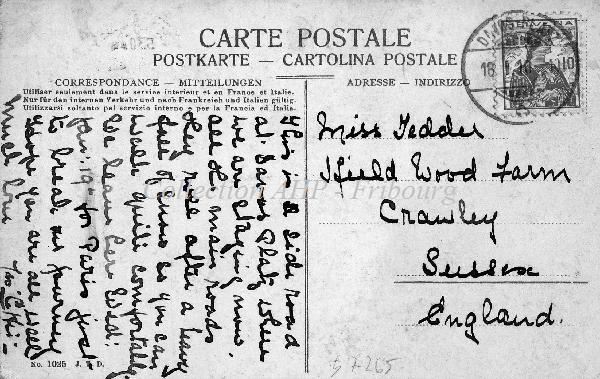 CARTE POSTALE
POSTKARTE - CARTOLINA POSTALE
CORRESPONDANCE - MITTEILUNGEN
Utiliser seulement dans le service intérieur et en France et Italie.
Nur für den internen Verkehr und nach Frankreich und Italien gültig.
Utilizzarsi soltanto pel servizio interno e per la Francia ed Italia.
This is a side road
at Davos Platz where
we are staying now.
all the main roads
they rule after a heavy
fall of snow so you can
walk quite comfortably.
We leave here Wed:
Jan: 19th for Paris just
to break our journey
Hope you are all well
much love
ADRESSE - INDIRIZZO
Miss Tedder
Ifield Wood Farm
Crawley
Sussex
England.
HELVETIA
DAVOS
18
10
Collection AHP - Fribourg
No. 1025 J. T. D.
57265